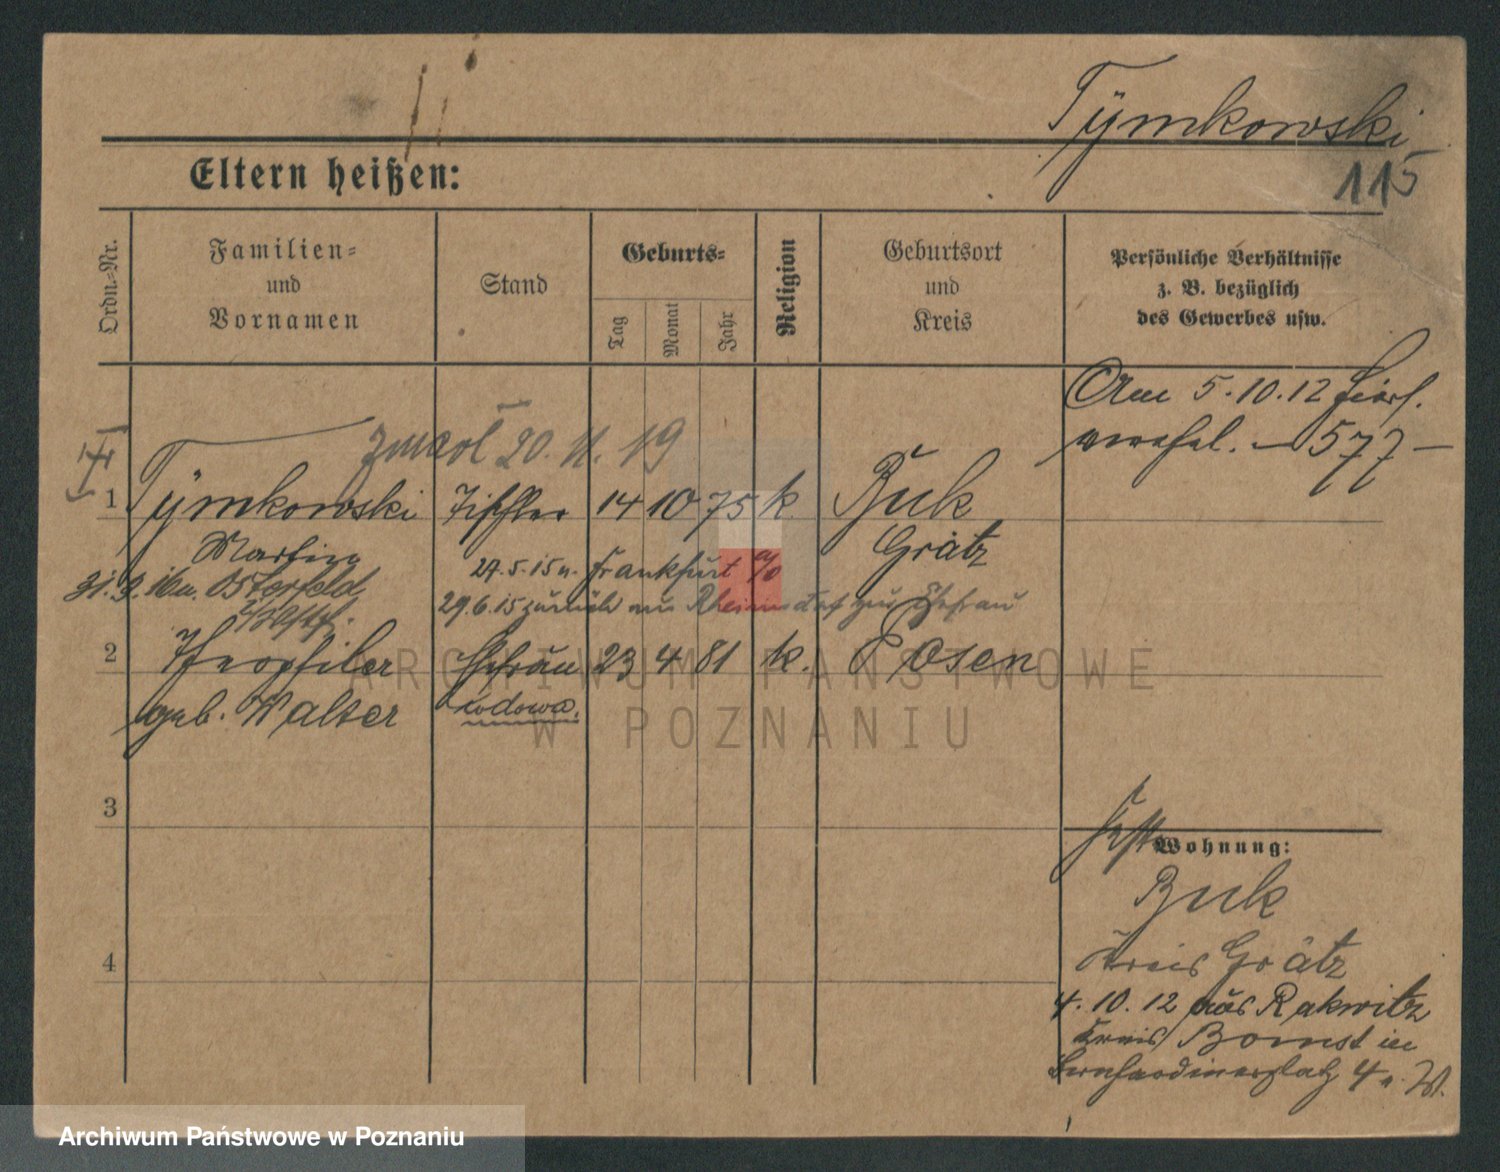 Tÿmkowski
115
Eltern heißen:
Ordn.-Nr.
Familien-
und
Vornamen
Stand
Geburts-
Tag
Monat
Jahr
Religion
Geburtsort
und
Kreis
Persönliche Verhältnisse
z. B. bezüglich
des Gewerbes usw.
Am 5.10.12
577
zmarł 20.11.19
1 Tÿmkowski Tischler 14 10 75 k. Buk
Martin Grätz
27.5.15 n. Frankfurt a/O
31.3.16 n. Osterfeld
29.6.15 zurück aus zur Ehefrau
i/Westf.
2 Theophila Ehefrau 23 4 81 k. Posen
geb. Walter wdowa.
3
4
Wohnung:
Buk
Kreis Grätz
4.10.12 aus Rakwitz
Kreis Bomst in
Bernhardinerplatz 4 b. W.
ARCHIWUM PAŃSTWOWE
W POZNANIU
Archiwum Państwowe w Poznaniu